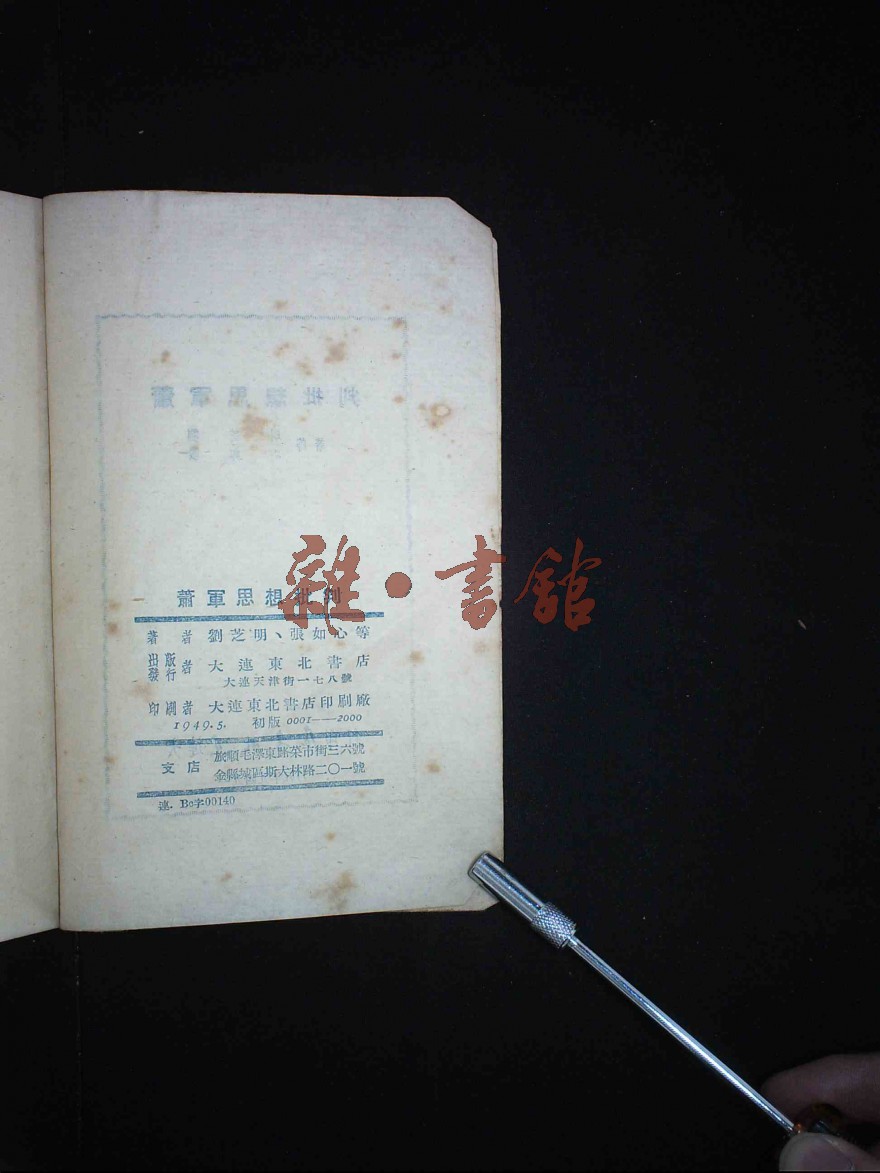 蕭軍思想批判
著者 劉芝明、張如心等
出版發行者 大連東北書店
大連天津街一七八號
印刷者 大連東北書店印刷廠
1949.5. 初版 0001——2000
支店 旅順毛澤東路菜市街三六號
金縣城區斯大林路二〇一號
連. Bc字00140
雜·書館